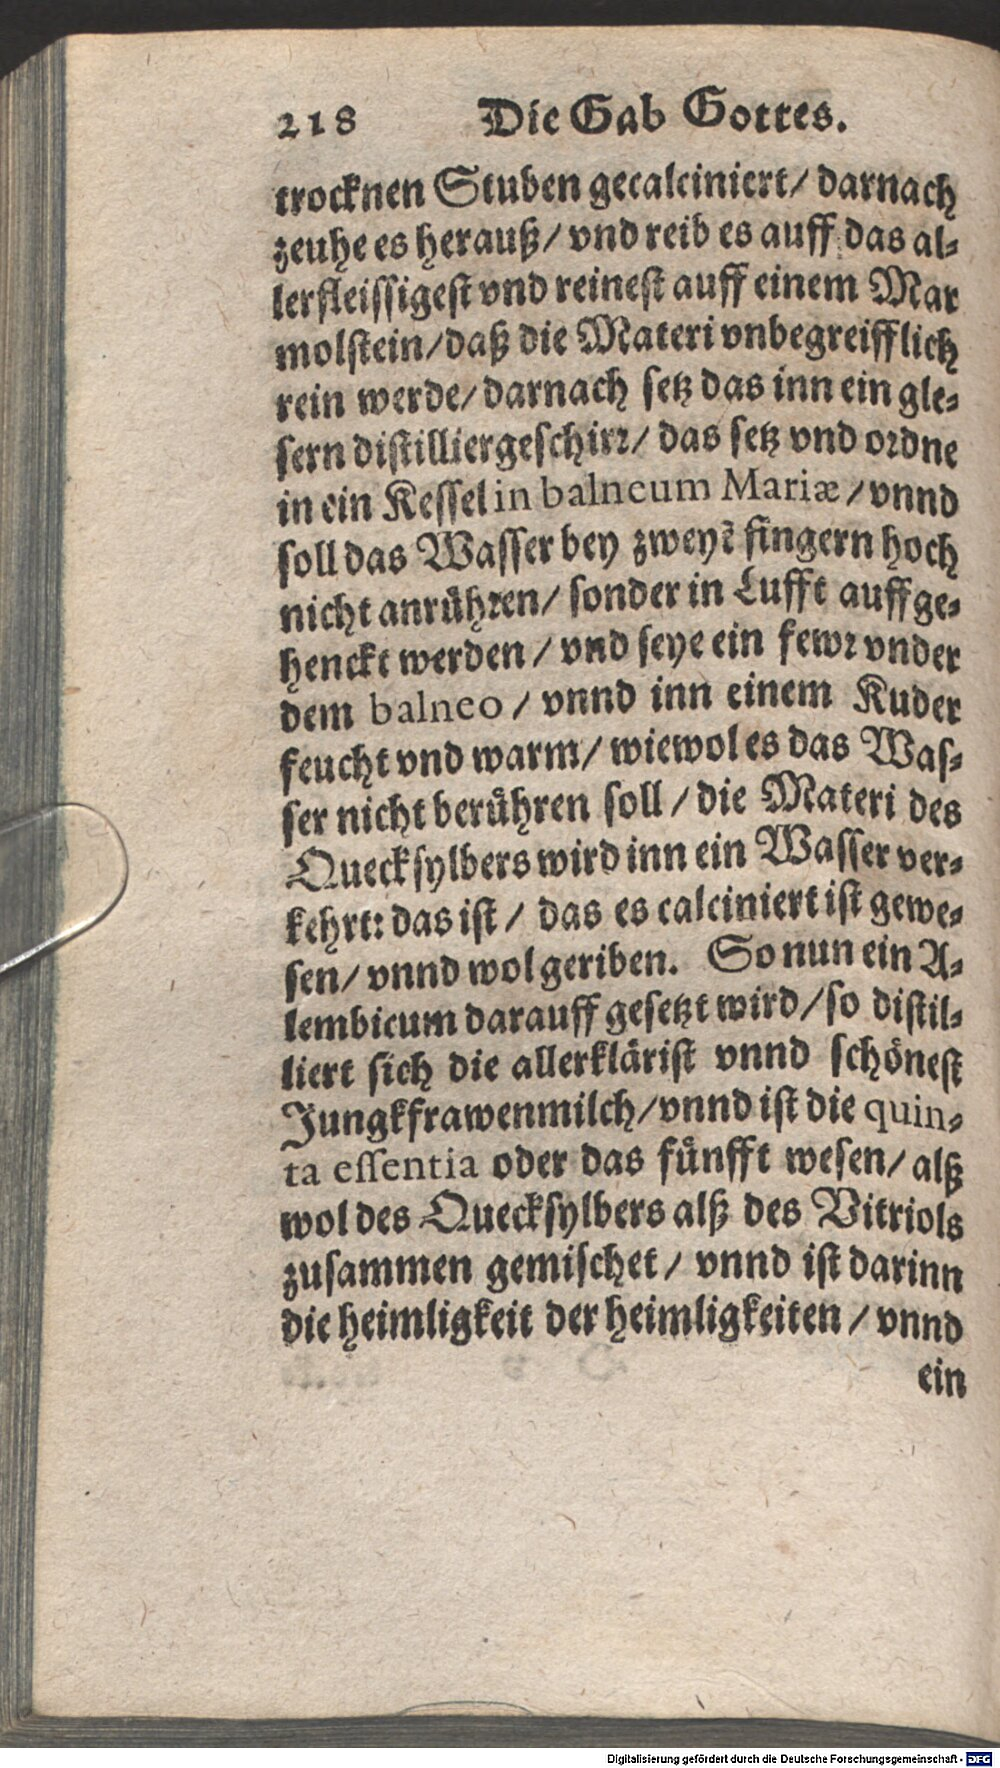 218 Die Gab Gottes.
trocknen Stuben gecalciniert/ darnach
zeuhe es herauß/ vnd reib es auff das al⸗
lerfleissigest vnd reinest auff einem Mar
molstein/daß die Materi vnbegreifflich
rein werde/ darnach setz das inn ein gle⸗
sern distilliergeschirr/ das setz vnd ordne
in ein Kessel in balneum Mariæ/ vnnd
soll das Wasser bey zweyẽ fingern hoch
nicht anrühren/ sonder in Lufft auffge⸗
henckt werden/ vnd seye ein fewr vnder
dem balneo/ vnnd inn einem Kuder
feucht vnd warm/ wiewol es das Was⸗
ser nicht berühren soll/ die Materi des
Quecksylbers wird inn ein Wasser ver⸗
kehrt: das ist/ das es calciniert ist gewe⸗
sen/ vnnd wol geriben. So nun ein A⸗
lembicum darauff gesetzt wird/ so distil⸗
liert sich die allerklärist vnnd schönest
Jungkfrawenmilch/vnnd ist die quin⸗
ta essentia oder das fünfft wesen/ alß
wol des Quecksylbers alß des Vitriols
zusammen gemischet/ vnnd ist darinn
die heimligkeit der heimligkeiten/ vnnd
ein
Digitalisierung gefördert durch die Deutsche Forschungsgemeinschaft - DFG